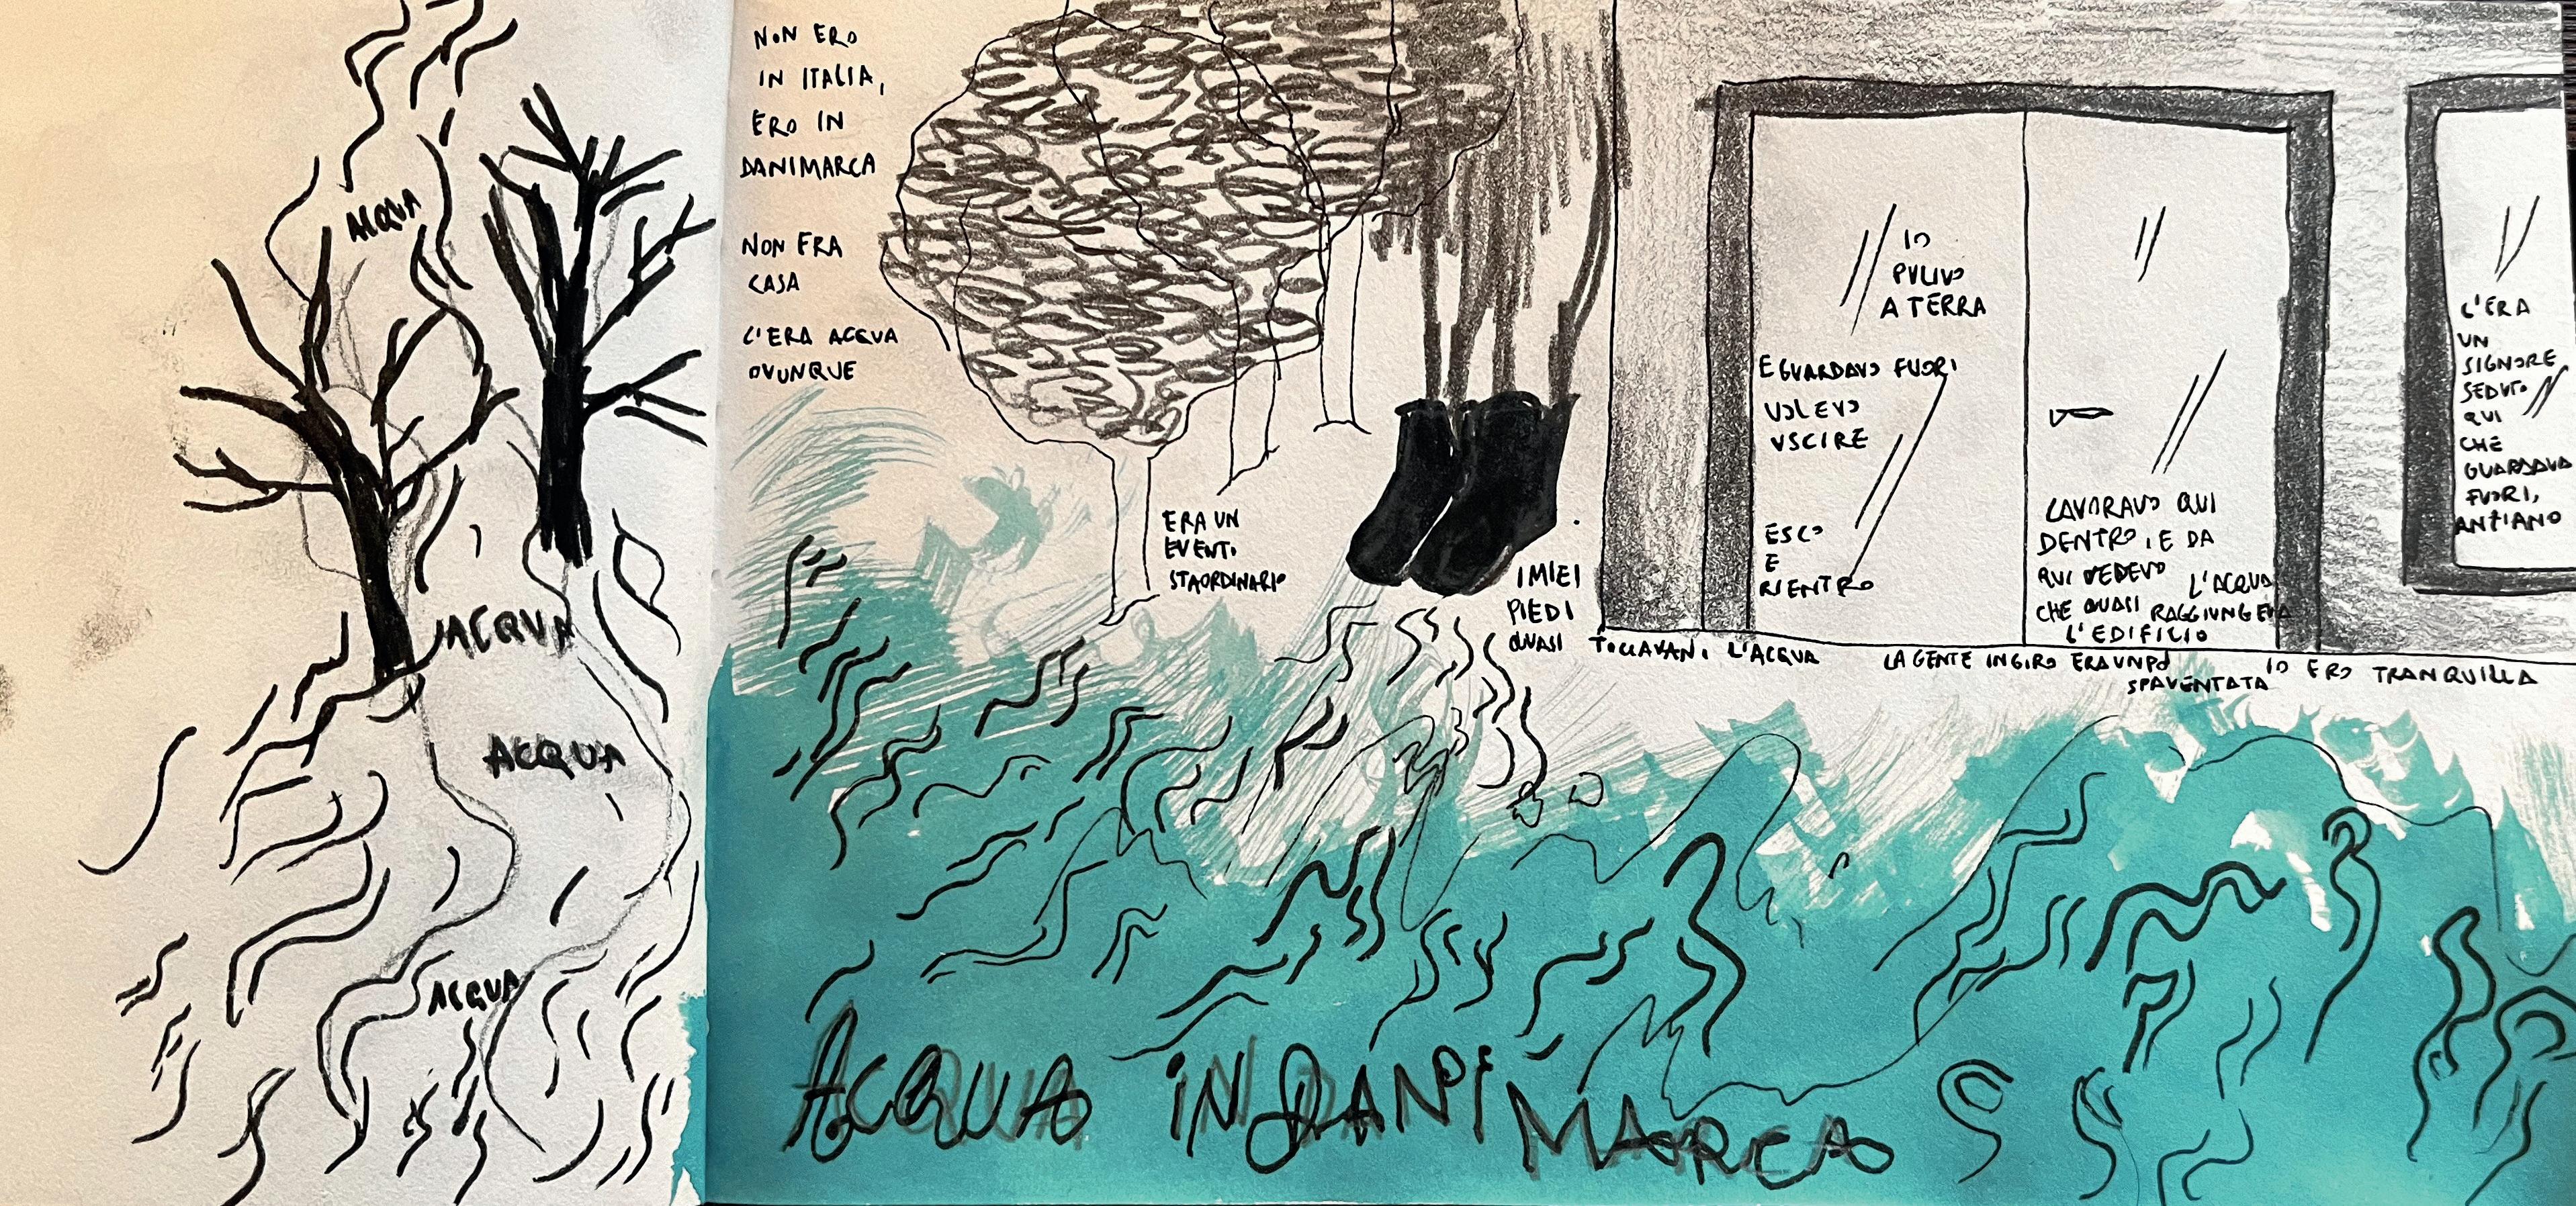 ACQUA
ACQUA
ACQUA
ACQUA
NON ERO
IN ITALIA,
ERO IN
DANIMARCA
NON ERA
CASA
C'ERA ACQUA
OVUNQUE
ERA UN
EVENTO
STAORDINARIO
I MIEI
PIEDI
QUASI
TOCCAVANO L'ACQUA
IO
PULIVO
A TERRA
E GUARDAVO FUORI
VOLEVO
USCIRE
ESCO
E
RIENTRO
LAVORAVO QUI
DENTRO, E DA
QUI VEDEVO L'ACQUA
CHE QUASI RAGGIUNGEVA
L'EDIFICIO
C'ERA
UN
SIGNORE
SEDUTO
QUI
CHE
GUARDAVA
FUORI,
ANZIANO
LA GENTE IN GIRO ERA UN PO'
SPAVENTATA
IO ERO TRANQUILLA
ACQUA IN DANIMARCA